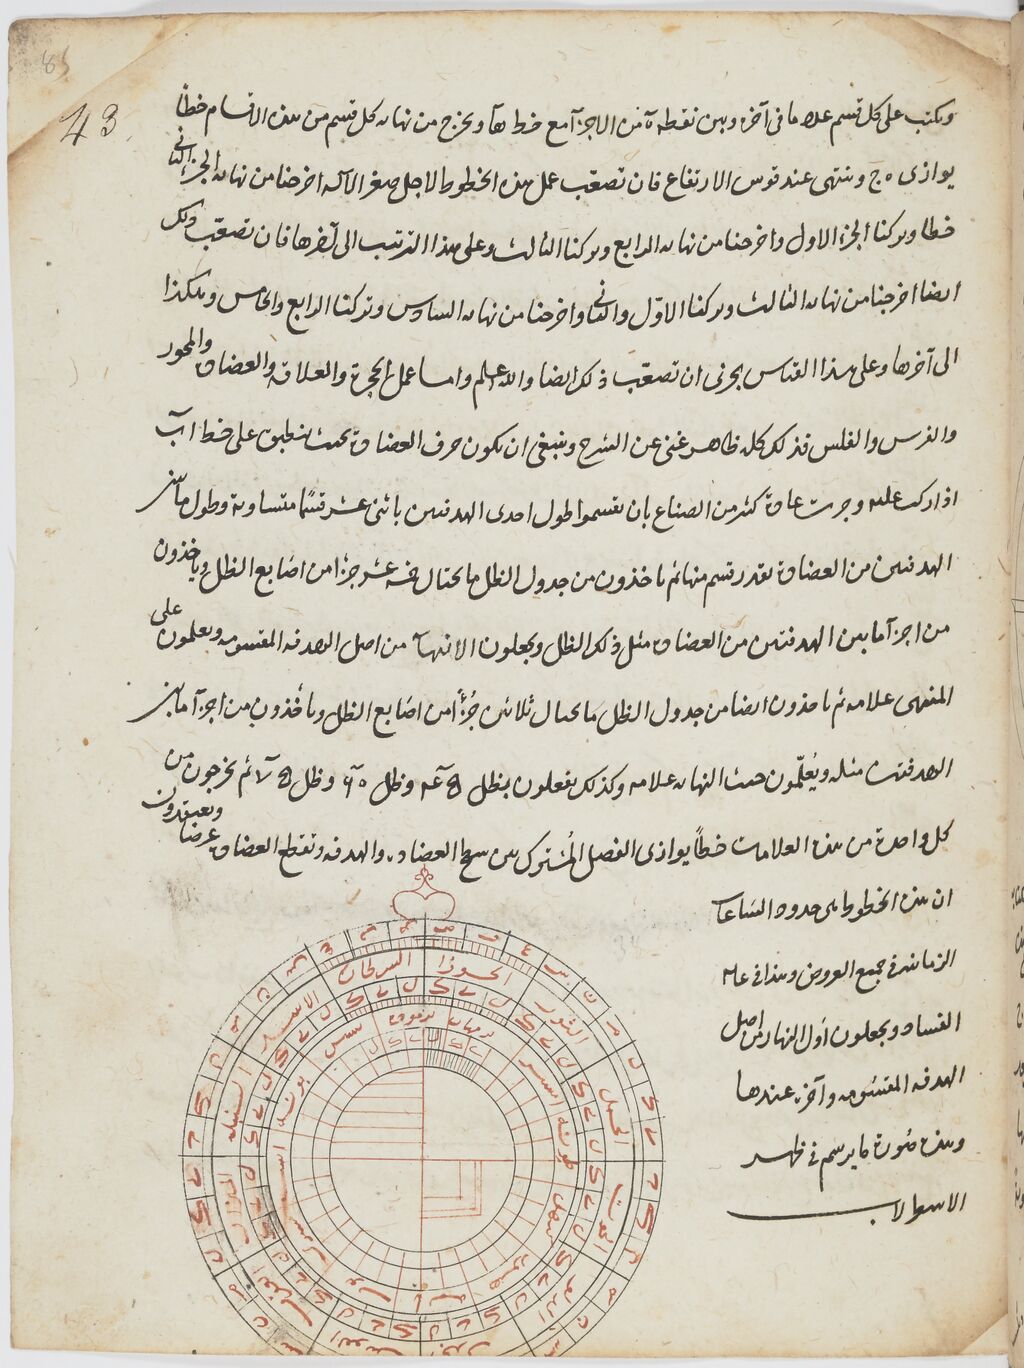 43
ويكتب على كل قسم علاما في آخره وبين نقطة ه من الاجزآ مع خط ها ويخرج من نهاية كل قسم من هذه الاقسام خطًا
يوازى ه ج وينتهى عند قوس الارتفاع فان تصعّب عمل هذه الخطوط لاجل صغر الآلة اخرجنا من نهاية الجزء الثانى
خطا وتركنا الجزء الاول واخرجنا من نهاية الرابع وتركنا الثالث وعلى هذا الترتيب الى آخرها فان تصعّب ذلك
ايضا اخرجنا من نهاية الثالث وتركنا الاوّل والثانى واخرجنا من نهاية السادس وتركنا الرابع والخامس وهكذا
الى آخرها وعلى هذا القياس يجرى ان تصعّب ذلك ايضا والله اعلم واما عمل الحجرة والعلاقة والعضادة والمحور
والفرس والفلس فذلك كله ظاهر غنى عن الشرح وينبغى ان يكون حرف العضادة بحيث ينطبق على خط اب
اذا ركب عليه وجرت عادة كثير من الصناع بان يقسموا طول احدى الهدفتين باثنى عشر قسمًا متساوية وطول ما بين
الهدفتين من العضادة بقدر قسم منها ثم ياخذون من جدول الظل ما بحيال خمسة عشر جزءًا من اصابع الظل وياخذون
من اجزآ ما بين الهدفتين من العضادة مثل ذلك الظل ويجعلون الابتهآ من اصل الهدفة المقسومة ويعلمون على
المنتهى علامة ثم ياخذون ايضا من جدول الظل ما بحيال ثلاثين جُزءًا من اصابع الظل ويأخذون من اجزآ ما بين
الهدفتين مثله ويُعلّمون حيث النهاية علامة وكذلك يفعلون بظل وظل وظل ثم يخرجون من
كل واحدة من هذه العلامات خطًا يوازى الفصل المُشترك بين سطح العضادة والهدفة وتقطع العضادة عرضا ويعتقدون
ان هذه الخطوط هى حدود السّاعات
الزمانية في جميع العروض وهذا في غاية
الفساد ويجعلون اول النهار من اصل
الهدفة المقسُومة وآخره عندها
وهذه صُورة ما يرسم في ظهر
الاسطرلاب
الجوزا
السرطان
الثور
الاسد
الحمل
السنبلة
الحوت
الميزان
الدلو
العقرب